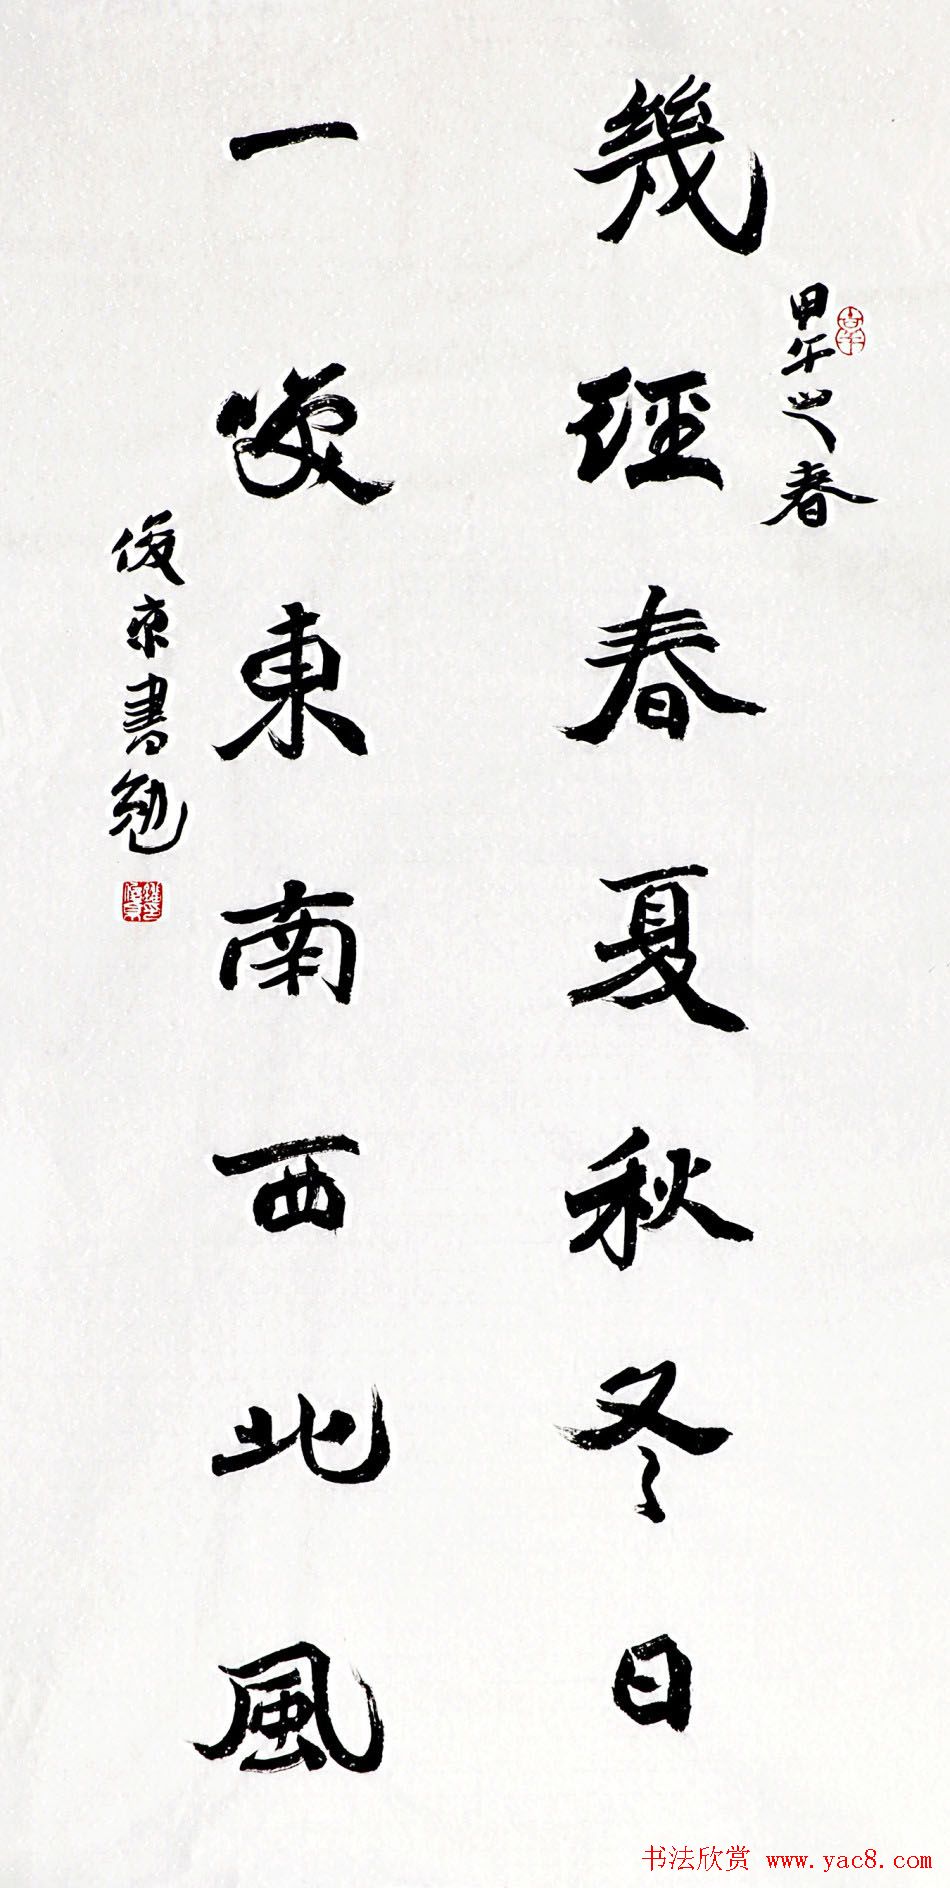 甲午之春
幾經春夏秋冬日
一笑東南西北風
俊京書勉
书法欣赏 www.yac8.com